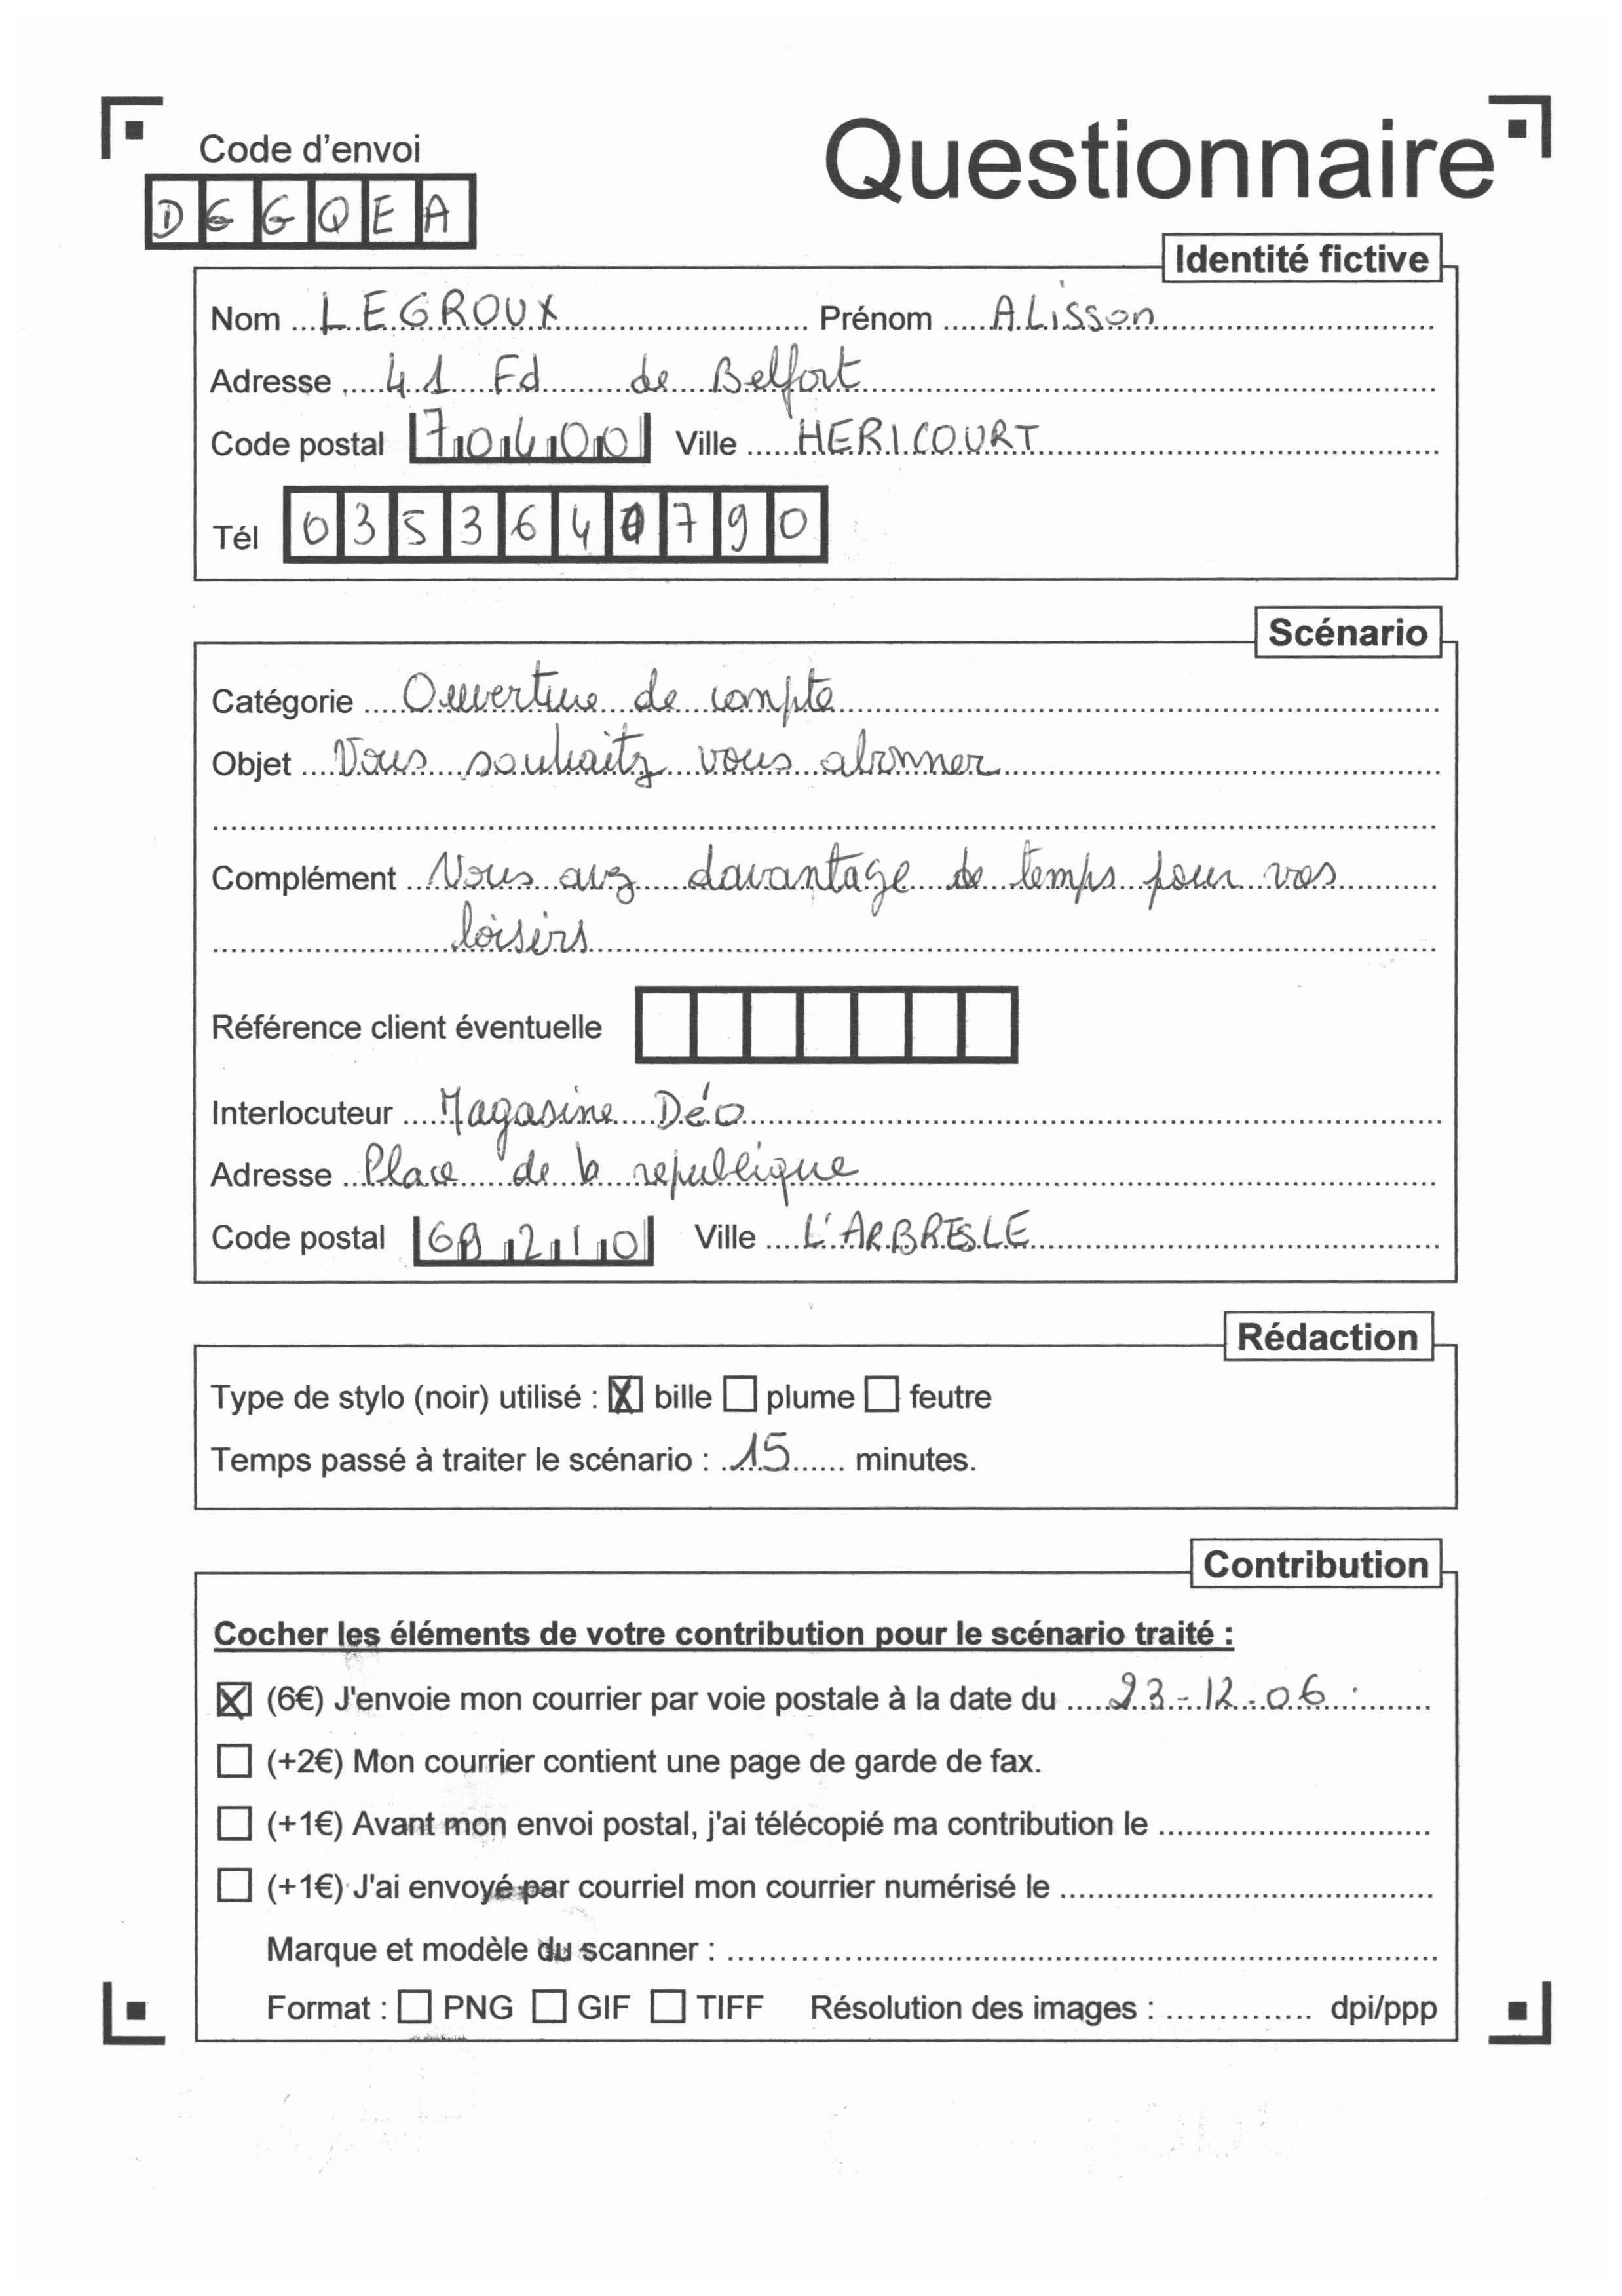 Questionnaire
Code d'envoi
D G G Q E A
Identité fictive
Nom LEGROUX Prénom ALisson
Adresse 41 Fd de Belfort
Code postal 70400 Ville HERICOURT
Tél 035364 790
Scénario
Catégorie Ouverture de compte
Objet Vous souhaitz vous abonner
Complément Vous avz davantage de temps pour vos
loisirs
Référence client éventuelle
Interlocuteur Magasine Déo
Adresse Place de la republique
Code postal 69210 Ville L'ARBRESLE
Rédaction
Type de stylo (noir) utilisé : bille plume feutre
Temps passé à traiter le scénario : 15 minutes.
Contribution
Cocher les éléments de votre contribution pour le scénario traité :
(6€) J'envoie mon courrier par voie postale à la date du 23-12-06
(+2€) Mon courrier contient une page de garde de fax.
(+1€) Avant mon envoi postal, j'ai télécopié ma contribution le
(+1€) J'ai envoyé par courriel mon courrier numérisé le
Marque et modèle du scanner :
Format : PNG GIF TIFF Résolution des images : dpi/ppp